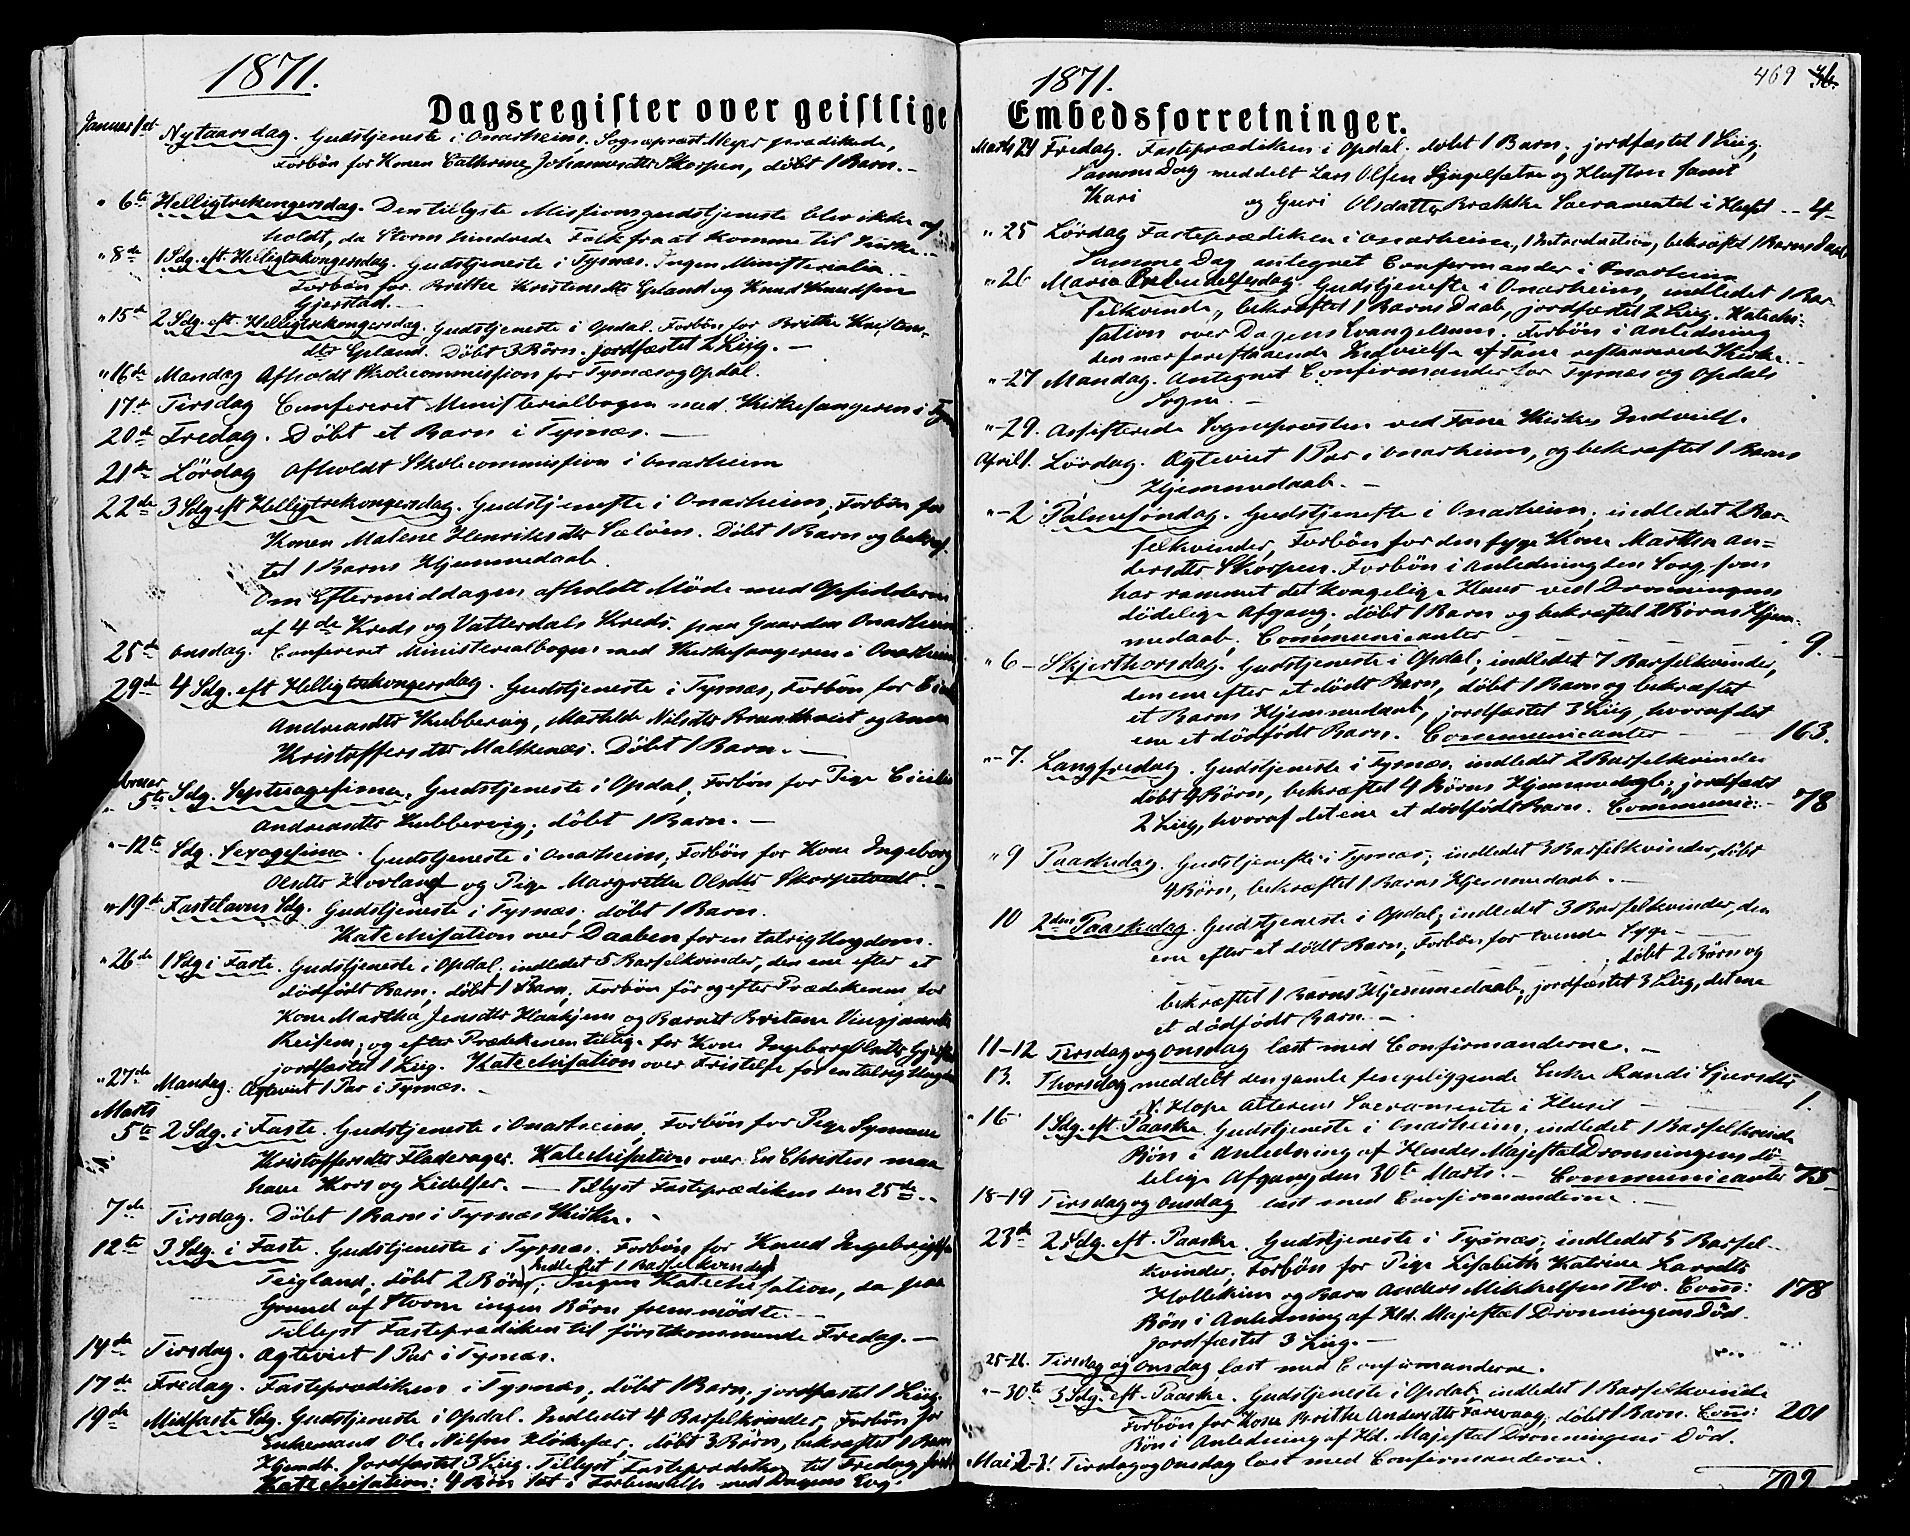 1871.
Dagsregister over geistlige
Januar 1st Nytaarsdag. Gudstjeneste i Onarheim. Sognepræst Meyer prædikede,
Forbøn for Konen Cathrine Johannesdtr Skorpen, døbt 1 Barn. -
" 6te Helligtrekongersdag. Den tillyste Missionsgudstjeneste blev ikke af-
holdt, da Storm hindrede Folk fra at komme til Kirke. -
" 8de 1 Sdg. eft. Helligtrekongersdag. Gudstjeneste i Tysnæs. Ingen Ministerialia. -
Forbøn for Brithe Kristensdtr Epland og Knud Knudsen
Gjerstad. -
" 15de 2 Sdg. eft. Helligtrekongersdag. Gudstjeneste i Opdal. Forbøn for Brithe
dtr Epland. Døbt 3 Børn. jordfæstet 2 Liig. -
" 16de Mandag Afholdt Skolecommission for Tysnæs og Opdal.
17de Tirsdag Confereret Ministerialbogen med Kirkesangeren i
20de Fredag. Døbt et Barn i Tysnæs. -
21de Lördag Afholdt Skolecommission i Onarheim
22de 3 Sdg eft Helligtrekongersdag. Gudstjeneste i Onarheim, Forbøn for
Konen Malene Henriksdtr Sælöen. Døbt 1 Barn og bekræf-
tet 1 Barns Hjemmedaab.
Om Eftermiddagen afholdt Möde med Opsidderne
af 4de Kreds og Vatterdals Kreds. paa Gaarden Onarheim
25de Onsdag. Confereret Ministerialbogen med Kirkesangeren i Onarheim
29de 4 Sdg. eft Helligtrekongersdag. Gudstjeneste i Tysnæs, Forbøn for
Andreasdtr Hubbervig, Mathilde Nilsdtr Brunthveit og Anna
Kristoffersdtr Malkenæs. Døbt 1 Barn. -
5te Sdg. Septuagesima. Gudstjeneste i Opdal; Forbøn for Pige Cicilie
Andreasdtr Hubbervig; døbt 1 Barn. -
" 12te Sdg. Sexagesima. Gudstjeneste i Onarheim; Forbøn for Kone Ingeborg
Olsdtr Hovland og Pige Margrethe Olsdtr Skorpetvedt. -
" 19de Fastelavns Sdg. Gudstjeneste i Tysnæs. døbt 1 Barn.
Katechisation over Daaben for en talrig Ungdom.
" 26de 1 Sdg i Faste. Gudstjeneste i Opdal, indledet 5 Barselkvinder, den ene efter et
dödfödt Barn; døbt 1 Barn; Forbøn för og efter Prædikenen for
Kone Martha Jensdtr Haakjem og Barnet
Reisem; og efter Prædikenen tillige for Kone Ingeborg Olsdtr
jordfæstet 1 Liig. Katechisation over Fristelse for en talrig Ungdom
" 27de Mandag. Ægteviet 1 Par i Tysnæs. -
Marts
5te 2 Sdg. i Faste. Gudstjeneste i Onarheim, Forbøn for Pige Synneve
Kristoffersdtr Fladerager. Katechisation over: En Christen maa
have Kors og Lidelser. - Tillyst Fasteprædiken den 25de. -
7de Tirsdag. Døbt 1 Barn i Tysnæs Kirke. -
12te 3 Sdg. i Faste. Gudstjeneste i Tysnæs. Forbøn for Knud Ingebrigtsen
indledet 1 Barselkvinde
Teigland; døbt 2 Børn; Ingen Katechisation, da paa
Grund af Storm ingen Børn fremmödte. -
Tillyst Fasteprædiken til förstkommende Fredag. -
14de Tirsdag. Ægteviet 1 Par i Tysnæs.
17de Fredag. Fasteprædiken i Tysnæs; døbt 1 Barn; jordfæstet 1 Liig.
19de Midfaste Sdg. Gudstjeneste i Opdal. Indledet 4 Barselkvinder, Forbøn for
Enkemand Ole Nilsen; døbt 3 Børn, bekræftet 1 Barns
Hjemdb. Jordfæstet 3 Liig. Tillyst Fasteprædiken til Fredag
Katechisation: 4 Børn
1871.
469 36
Embedsforretninger.
Marts 24 Fredag. Fasteprædiken i Opdal. døbt 1 Barn; jordfæstet 1 Liig;
Samme Dag meddelt Lars Olsen Singelsætre og Kluften samt
Kari og Guri Olsdatter Brække Sacramentet i Huset. - - 4 -
" 25 Lördag Fasteprædiken i Onarheim, 1 Introduction, bekræft 1 Barns Daab
Samme Dag antegnet Confirmander i Onarheim
" 26 Maria Bebudelsesdag. Gudstjeneste i Onarheim, indledet 1 Bar-
selkvinde, bekræftet 1 Barns Daab, jordfæstet 2 Liig. Katechi-
sation over Dagens Evangelium. Forbøn i Anledning
den nærforestaaende Indvielse af Fane restaurerede Kirke. -
" 27 Mandag. Antegnet Confirmander for Tysnæs og Opdals
Sogne. -
" 29. Assisterede Sogneprosten ved Fane Kirkes Indvielse.
April 1. Lördag. Ægteviet 1 Par i Onarheim, og bekræftet 1 Barns
Hjemmedaab. -
" - 2 Palmesøndag. Gudstjeneste i Onarheim; indledet 2 Bar-
selkvinder, Forbøn for den syge Kone Martha An=
dersdtr Skorpen. Forbøn i Anledning den Sorg, som
har rammet det kongelige Huus ved Dronningens
dödelige Afgang; døbt 1 Barn og bekræftet 2 Børns Hjem-
medaab; Communicanter - - - 9. -
" 6 - Skjerthorsdag. Gudstjeneste i Opdal; indledet 7 Barselkvinder,
den ene efter et dödt Barn, døbt 1 Barn og bekræftet
et Barns Hjemmedaab, jordfæstet 3 Liig, hvoraf det
ene et dödfödt Barn. Communicanter - - 163.
" - 7. Langfredag. Gudstjeneste i Tysnæs, indledet 2 Barselkvinder
døbt 4 Børn, bekræftet 4 Børns Hjemmedaab; jordfæst
2 Liig, hvoraf det ene et dödfödt Barn. Communic: - 78
" 9 Paaskedag. Gudstjeneste i Tysnæs; indledet 3 Barselkvinder, döbt
4 Börn, bekræftet 1 Barns Hjemmedaab. -
10 2den Paaskedag. Gudstjeneste i Opdal; indledet 3 Barselkvinder, den
ene efter et dödt Barn; Forbøn for tvende Syge -
; døbt 2 Børn og
bekræftet 1 Barns Hjemmedaab; jordfæstet 3 Liig, det ene
et dödfödt Barn. -
11-12 Tirsdag og Onsdag læst med Confirmanderne. -
13. Thorsdag meddelt den gamle sengeliggende Enke Randi Sjursdtr
N. Hope Alterens Sacramente i Huset - 1.
" 16 1 Sdg. eft. Paaske. Gudstjeneste i Onarheim; indledet 1 Barselkvinde
Bøn i Anledning af Hendes Majestæt Dronningens dö-
delige Afgang den 30te Marts. - Communicanter 75
18-19 Tirsdag og Onsdag læst med Confirmanderne. -
23de 2 Sdg. eft. Paaske. Gudstjeneste i Tysnæs; indledet 5 Barsel-
kvinder, Forbøn for Pige Lisabeth Katrine Larsdtr
Hollekim og Barn Anders Mikkelsen Thv. Com: 178
Bøn i Anledning af Hd. Majestæt Dronningens Død.
Jordfæstet 3 Liig. -
25-26. Tirsdag og Onsdag læst med Confirmanderne.
" - 30te 3 Sdg. eft. Paaske. Gudstjeneste i Opdal; indledet 1 Barselkvinde
Forbøn for Kone Brithe Andersdtr Færevaag; døbt 1 Barn. Com: 201
Bøn i Anledning af Hd. Majestæt Dronningens Død.
Mai 2-3. Tirsdag og Onsdag læst med Confirmanderne.
709